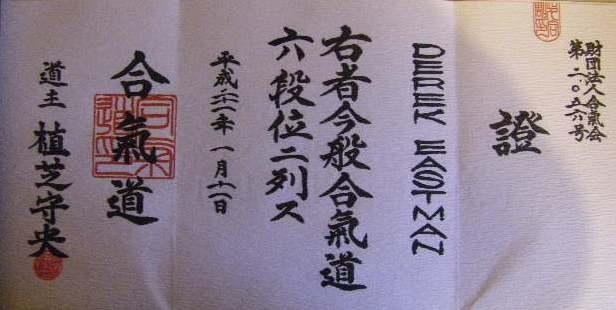 財団法人合氣会
第二〇五六号
證
DEREK EASTMAN
右者今般合氣道
六段位ニ列ス
平成二十一年 一月十一日
合氣道
道主 植芝守央